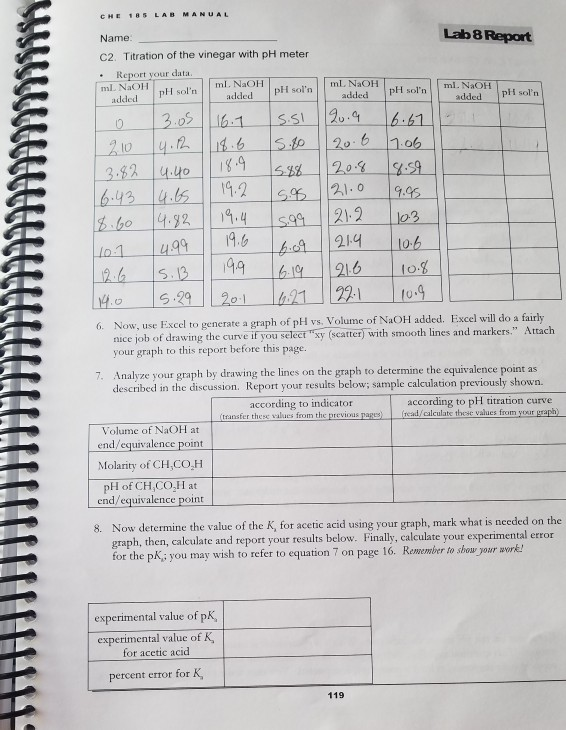 CHE 185 LAB MANUAL
Name:
Lab 8 Report
C2. Titration of the vinegar with pH meter
• Report your data.
mL NaOH added pH sol'n mL NaOH added pH sol'n mL NaOH added pH sol'n mL NaOH added pH sol'n
0 3.05 16.7 5.51 20.4 6.67
2.10 4.12 18.6 5.80 20.6 7.06
3.82 4.40 18.9 5.88 20.8 8.59
6.43 4.65 19.2 5.95 21.0 9.95
8.60 4.82 19.4 5.99 21.2 10.3
10.7 4.99 19.6 6.09 21.4 10.6
12.6 5.13 19.9 6.19 21.6 10.8
14.0 5.29 20.1 6.27 22.1 10.9
6. Now, use Excel to generate a graph of pH vs. Volume of NaOH added. Excel will do a fairly
nice job of drawing the curve if you select "xy (scatter) with smooth lines and markers." Attach
your graph to this report before this page.
7. Analyze your graph by drawing the lines on the graph to determine the equivalence point as
described in the discussion. Report your results below; sample calculation previously shown.
according to indicator according to pH titration curve
(transfer these values from the previous pages) (read/calculate these values from your graph)
Volume of NaOH at
end/equivalence point
Molarity of CH₃CO₂H
pH of CH₃CO₂H at
end/equivalence point
8. Now determine the value of the Kₐ for acetic acid using your graph, mark what is needed on the
graph, then, calculate and report your results below. Finally, calculate your experimental error
for the pKₐ; you may wish to refer to equation 7 on page 16. Remember to show your work!
experimental value of pKₐ
experimental value of Kₐ
for acetic acid
percent error for Kₐ
119